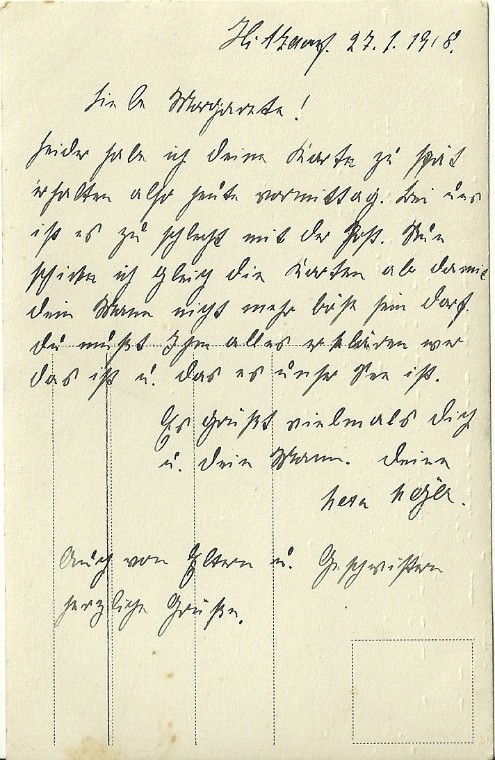 27.1.1918.
Liebe Margarete!
Leider habe ich deine Karte zu spät
erhalten also heute vormittag. Bei uns
ist es zu schlecht mit der Post. Nun
schicke ich gleich die Karten ab damit
dein Mann nicht mehr böse sein darf.
Du mußt Ihm alles erklären wer
das ist u. das es unser See ist.
Es grüßt vielmals dich
u. dein Mann. Deine
Auch von Eltern u. Geschwistern
herzliche Grüße.